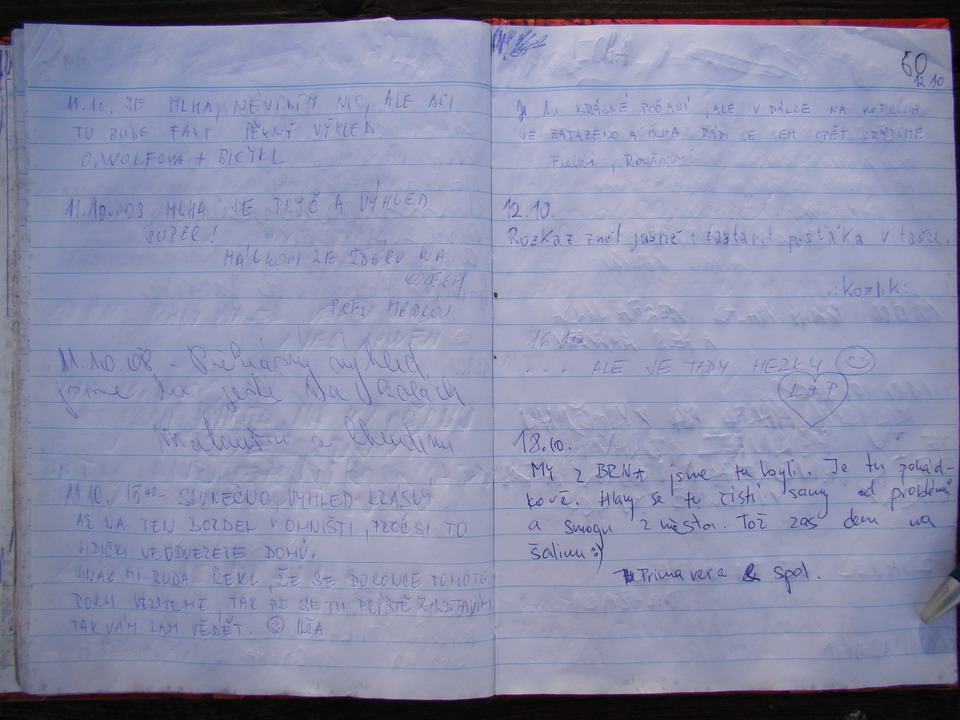 11.10. JE MLHA, NEVIDÍM NIC, ALE ASI
TU BUDE FAKT PĚKNÝ VÝHLED
O. WOLFOVÁ + BICYKL
11.10. 03 MLHA JE PRYČ A VÝHLED
SUPER!
ZE ŽĎÁRU NA
KOLECH
11.10.08 - Překrásný výhled
jsme na
a Chudimi
11.10. 15 40 - SLUNEČNO, VÝHLED KRÁSNÝ
AŽ NA TEN V OHNIŠTI, PROČ SI TO
LIDIČKI NEODVEZETE DOMŮ.
JINAK MI RUDA ŘEKL, ŽE SE DOKONCE TOHOTO
ROKU VEZMEME, TAK AŽ SE TU PŘÍŠTĚ ZASTAVÍM
TAK VÁM DÁM VĚDĚT. ☺
60
12.10
Je KRÁSNÉ POČASÍ, ALE V DÁLCE NA KOPCÍCH
JE ZATAŽENO A MLHA. RÁDI SE SEM OPĚT VRÁTÍME
12.10.
Rozkaz zněl jasně: zastavit pošťáka v tašce.
.:Kozlik:.
... ALE JE TADY HEZKY ☺
L+P
18.10.
My z BRNA jsme tu byli. Je tu pohád-
kově. Hlavy se tu čistí samy od problémů
a smogu z města. Tož zas dem na
šalinu:)
Primavera & spol.